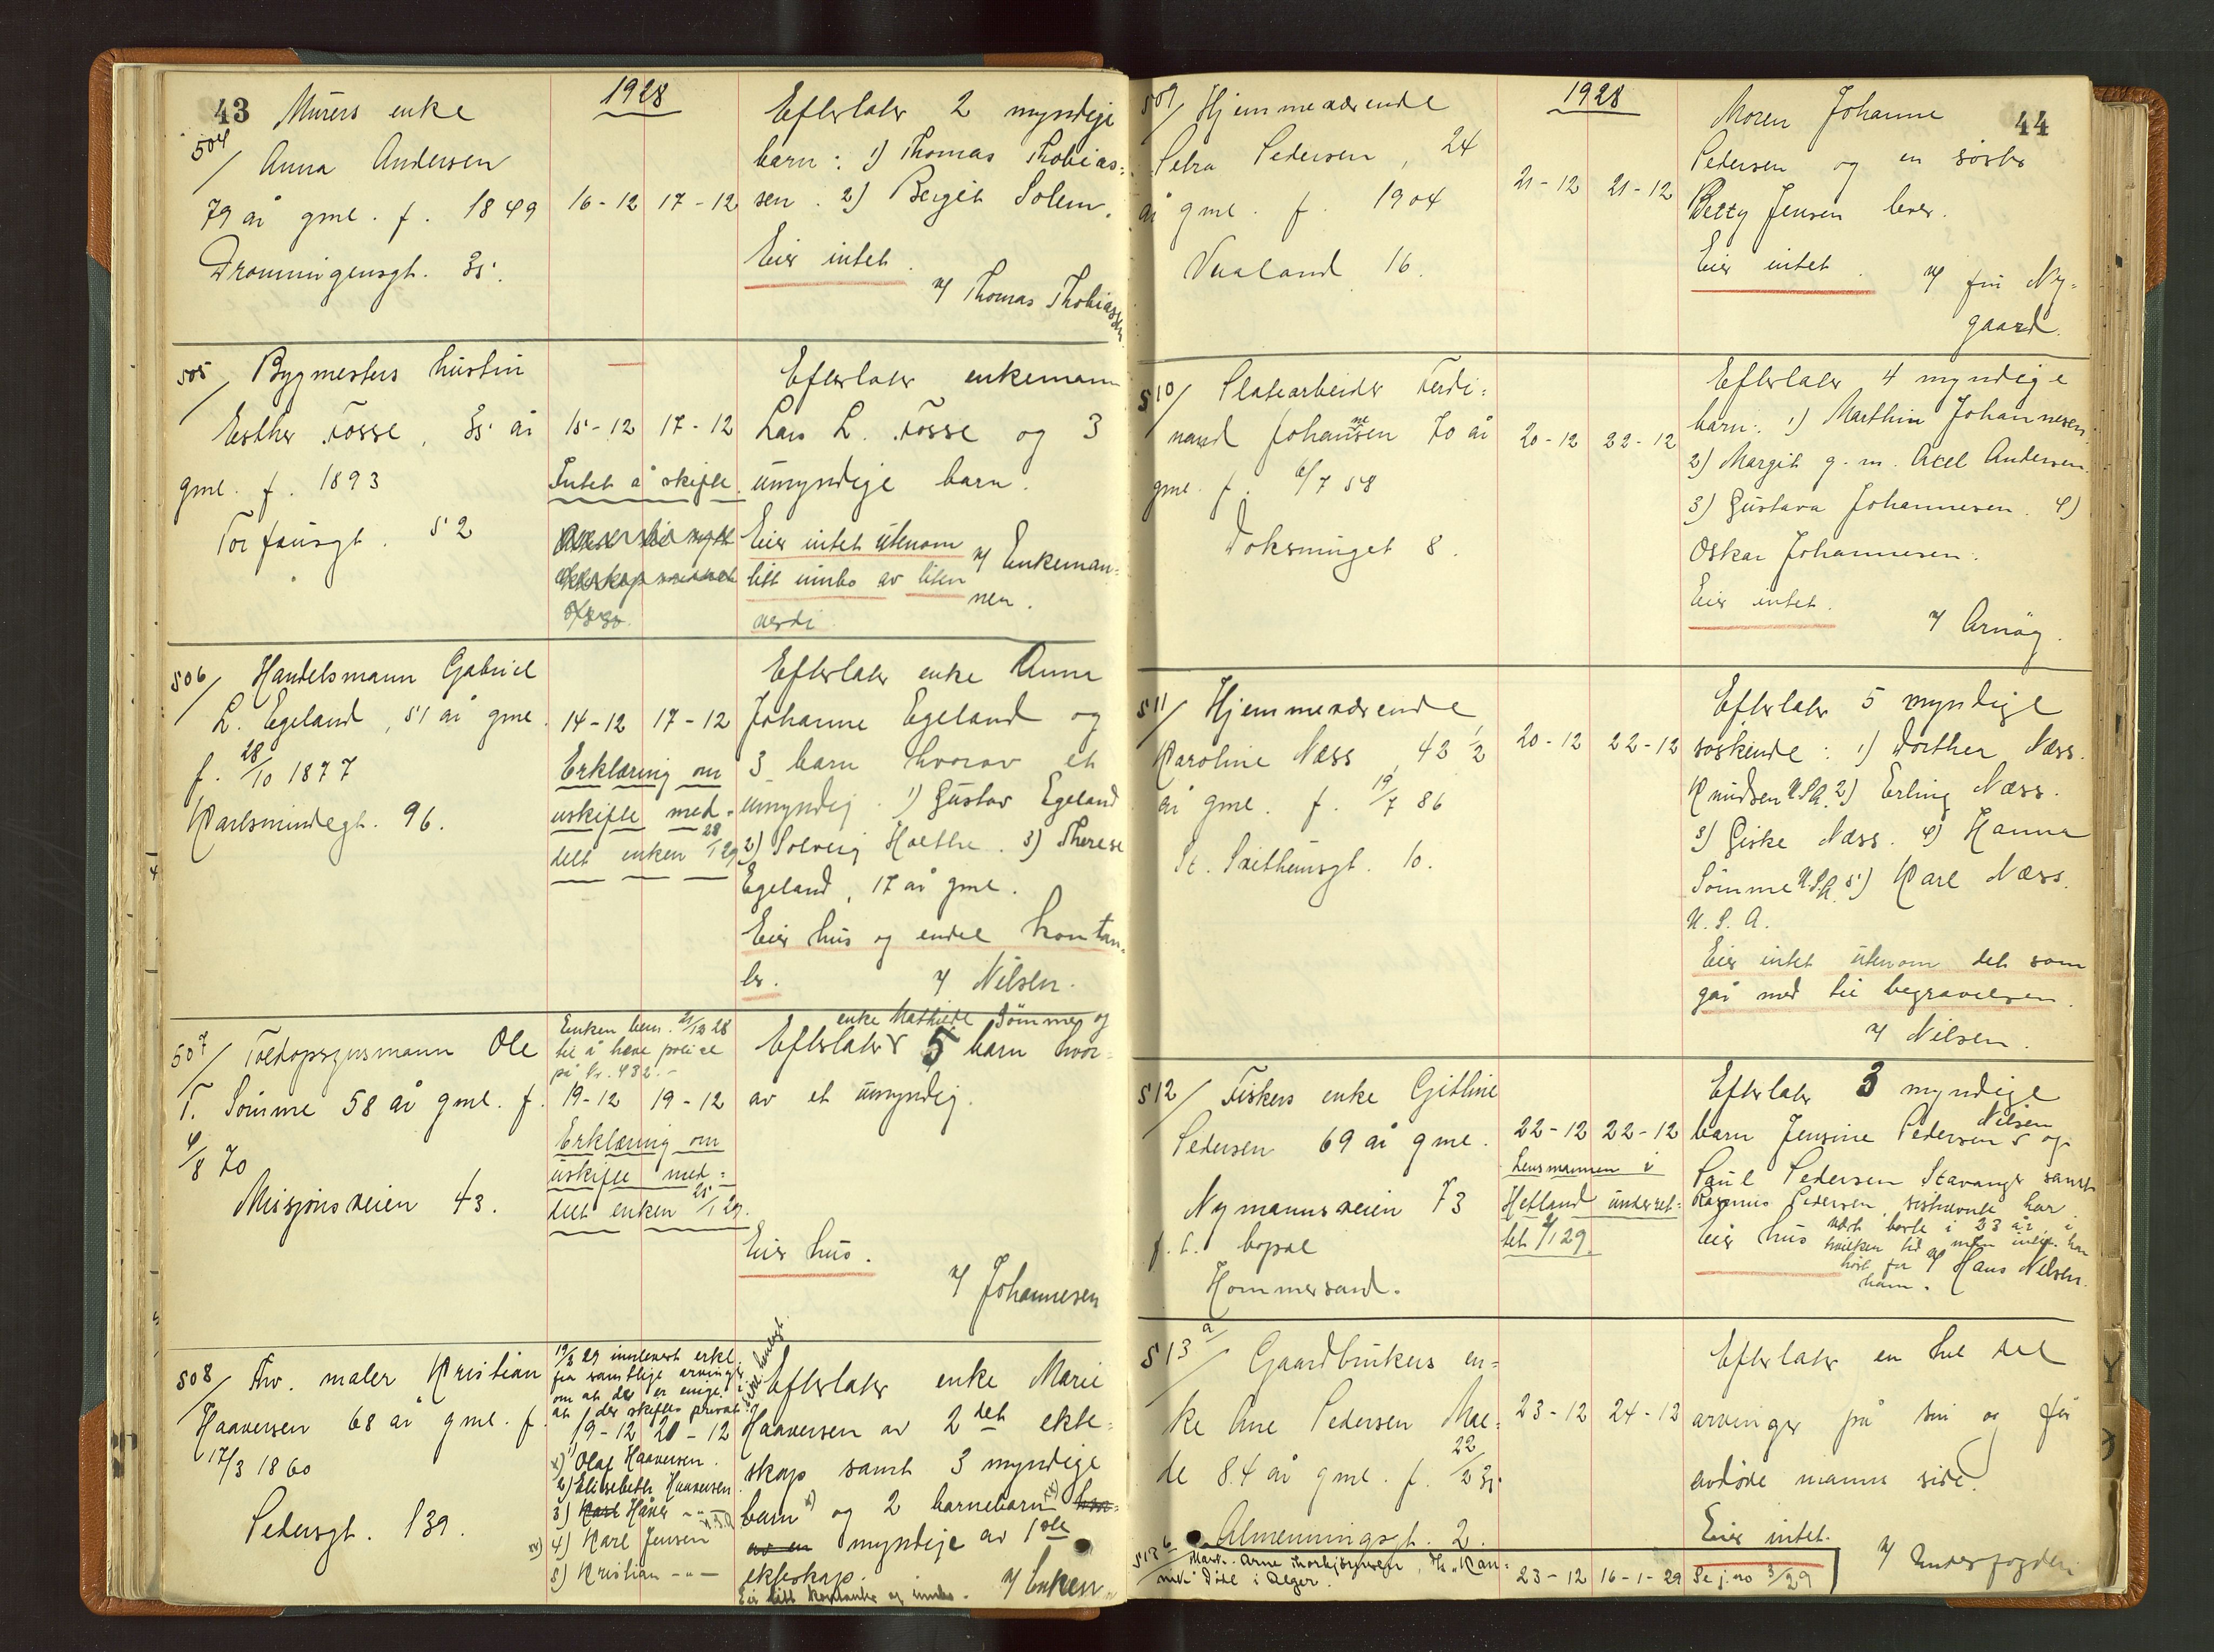 43
1928
504/ Murers enke
Anna Andersen
79 år gml. f. 1849
Dronningensgt. 35.
16-12 17-12
Efterlater 2 myndige
barn: 1) Thomas Thobias=
sen. 2) Bergit Solem.
Eier intet.
v/ Thomas Thobiassen
505/ Bygmesters hustru
Esther Fosse, 35 år
gml. f. 1893
Torfæusgt. 52
15-12 17-12
Intet å skifte.
Efterlater enkemann
Lars L. Fosse og 3
umyndige barn.
Eier intet utenom
litt innbo av liten
verdi
v/ Enkeman=
nen.
506/ Handelsmann Gabriel
L. Egeland, 51 år gml.
f. 28/10 1877
Karlsmindegt. 96.
14-12 17-12
Erklæring om
uskifte med=
delt enken 28/1 29
Efterlater enke Anna
Johanne Egeland og
3 barn hvorav et
umyndig. 1) Gustav Egeland
2) Solveig Holthe. 3) Therese
Egeland, 17 år gml.
Eier hus og endel kontan=
ter.
v/ Nilsen.
507/ Toldopsynsmann Ole
T. Sømme 58 år gml. f.
4/8 70
Misjonsveien 43.
Enken bem. 21/12 28
til å heve police
på kr. 432.-
19-12 19-12
Erklæring om
uskifte med=
delt enken 25/1 29.
enke Mathilde Sømme og
Efterlater 5 barn hvor=
av et umyndig.
Eier hus.
v/ Johannesen
508/ Fhv. maler Kristian
Haaversen 68 år gml. f.
17/3 1860
Pedersgt. 139.
19/3 29 innlevert erkl.
fra samtlige arvinger
om at der er enige i
at der skiftes privat
19-12 20-12
x) 1) Olaf Haaversen.
2) Elisebeth Haaversen
3) Karl Håver -"-
xx) 4) Karl Jensen
5) Kristian -"-
Efterlater enke Marie
Haaversen av 2det ekte=
skap samt 3 myndige
barn x) og 2 barnebarn xx)
av en myndige av 1ste
ekteskap.
Eier litt kontanter og innbo. v/ Enken.
44
1928
509/ Hjemmeværende
Petra Pedersen, 24
år gml. f. 1904
Vaaland 16.
21-12 21-12
Moren Johanne
Pedersen og en søster
Betzy Jensen lever.
Eier intet.
v/ fru Ny=
gaard.
510/ Platearbeider Ferdi=
nand Johannesen 70 år
gml. f. 6/7 58
Doksmuget 8.
20-12 22-12
Efterlater 4 myndige
barn: 1) Marthin Johannesen
2) Margit g.m. Axel Andersen.
3) Gustava Johannesen. 4)
Oskar Johannesen.
Eier intet.
v/ Arnøy.
511/ Hjemmeværende
Karoline Næss, 42 1/2
år gml. f. 19/7 86
St. Svithunsgt. 10.
20-12 22-12
Efterlater 5 myndige
søskende: 1) Dorthea Næss.
Knudsen U.S.A. 2) Erling Næss.
3) Giske Næss. 4) Hanna
Sømme U.S.A. 5) Karl Næss.
U.S.A.
Eier intet utenom det som
går med til begravelsen.
v/ Nilsen.
512/ Fiskers enke Gitline
Pedersen 69 år gml.
Nymannsveien 73
f. t. bopæl
Hommersand.
22-12 22-12
Lensmannen i
Hetland underret=
tet 2/1 29.
Efterlater 3 myndige
barn Jensine Pedersen Nilsen og
Paul Pedersen Stavanger samt
Rasmus Pedersen, sistnevnte har
vært borte i 33 år, i
hvilken tid man intet har
hørt fra ham.
Eier hus
v/ Hans Nilsen.
513 a/ Gaardbrukers en=
ke Ane Pedersen Mæ=
de 84 år gml. f. 22/2 35.
Almenningsgt. 2.
23-12 24-12
Efterlater en hel del
arvinger på sin og før
avdøde manns side.
Eier intet.
v/ Underfogden.
513 b/ Matr. Arne Thorbjørnsen, D/S "Ran=
mei" død i Alger.
23-12 16-1-29 Se j.no 3/29